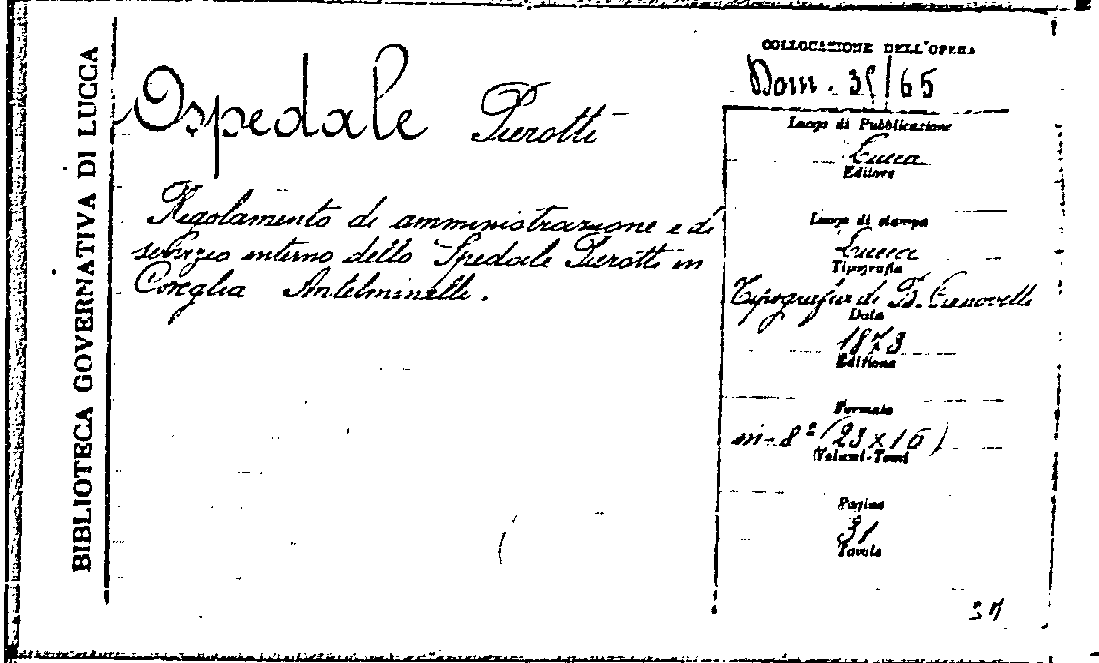 BIBLIOTECA GOVERNATIVA DI LUCCA
Ospedale Pierotti
Regolamento di amministrazione e di
servizio interno dello Spedale Pierotti in
Coreglia Antelminelli.
COLLOCAZIONE DELL'OPERA
Dom. 35/65
Luogo di Pubblicazione
Lucca
Editore
Luogo di stampa
Lucca
Tipografia
Tipografia di B. Canovetti
Data
1873
Edizione
Formato
in-8º (23x16)
(Volumi-Tomi
Pagine
31
Tavole